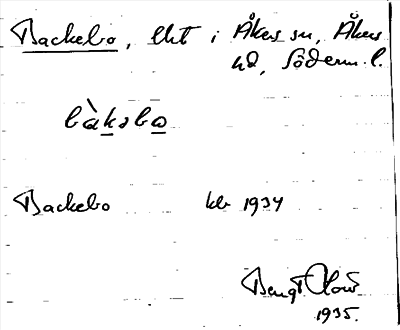 Backebo, lht i Åkers sn, Åkers
hd, Söderm. l.
bàksbo
Backebo kb 1934
Bengt
1935.